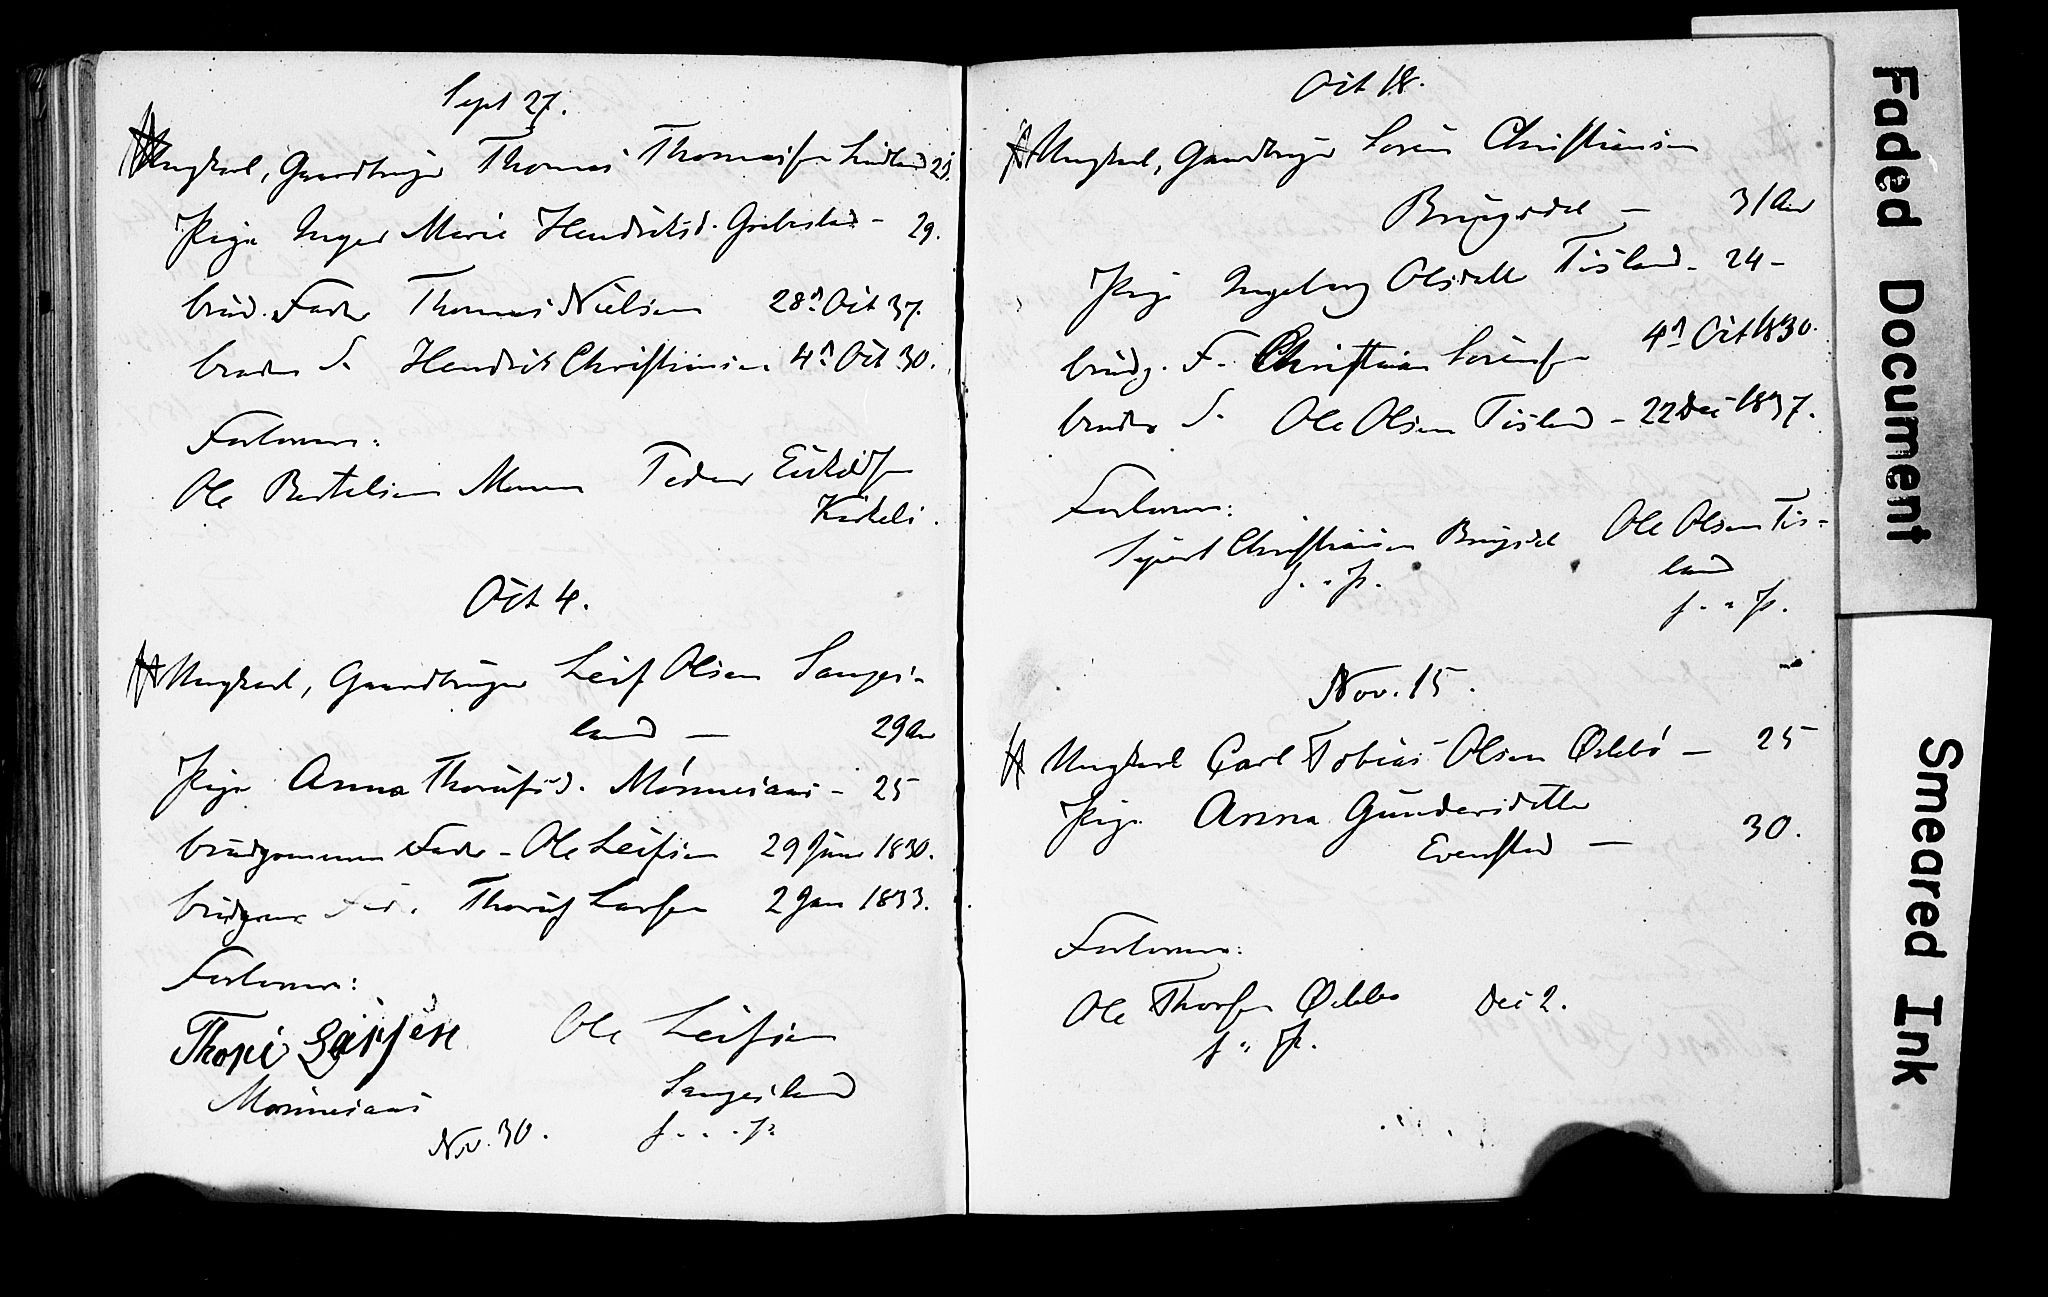 Sept 27.
Ungkarl, Gaardbruger Thomas Thomassen Lindland 28.
Pige Inger Marie Hendriksd. Grebestad - 29.
brud. Fader Thomas Nielsen 28d Oct 37.
bruden S. Hendrik Christiansen 4d Oct 30.
Forlovere:
Ole Bertelsen Moseen Peder Eskilds
Kirkeli.
Oct 4.
Ungkarl, Gaardbruger Leif Olsen Sanges-
land — 29 Aar
Pige Anna Thorufsd. Mønnesaas - 25
brudgommen Fader - Ole Leifsen 29 Juni 1830.
Thoruf Larsen 2 Jan 1833.
Forlovere:
Ole Leifsen
Mønnesaas Sangesland
Nov. 30. f. . . P.
Oct 18.
Ungkarl, Gaardbruger Søren Christiansen
Brugsdal — 31 Aar
Pige Ingeborg Olsdatter Tisland - 24 -
brudg. F. Christian Sørensen 4d Oct 1830.
bruden S. Ole Olsen Tisland - 22 Dec 1837.
Forlovere:
Sjurd Christiansen Brugsdal Ole Olsen Tis-
f. . P. land
f. . P.
Nov. 15.
Ungkarl Carl Tobias Olsen Ørlebø — 25
Pige Anna Gundersdatter
Evenstad — 30.
Forlovere:
Ole Thorsen Dec 2.
f. " P.
Faded Document
Smeared Ink